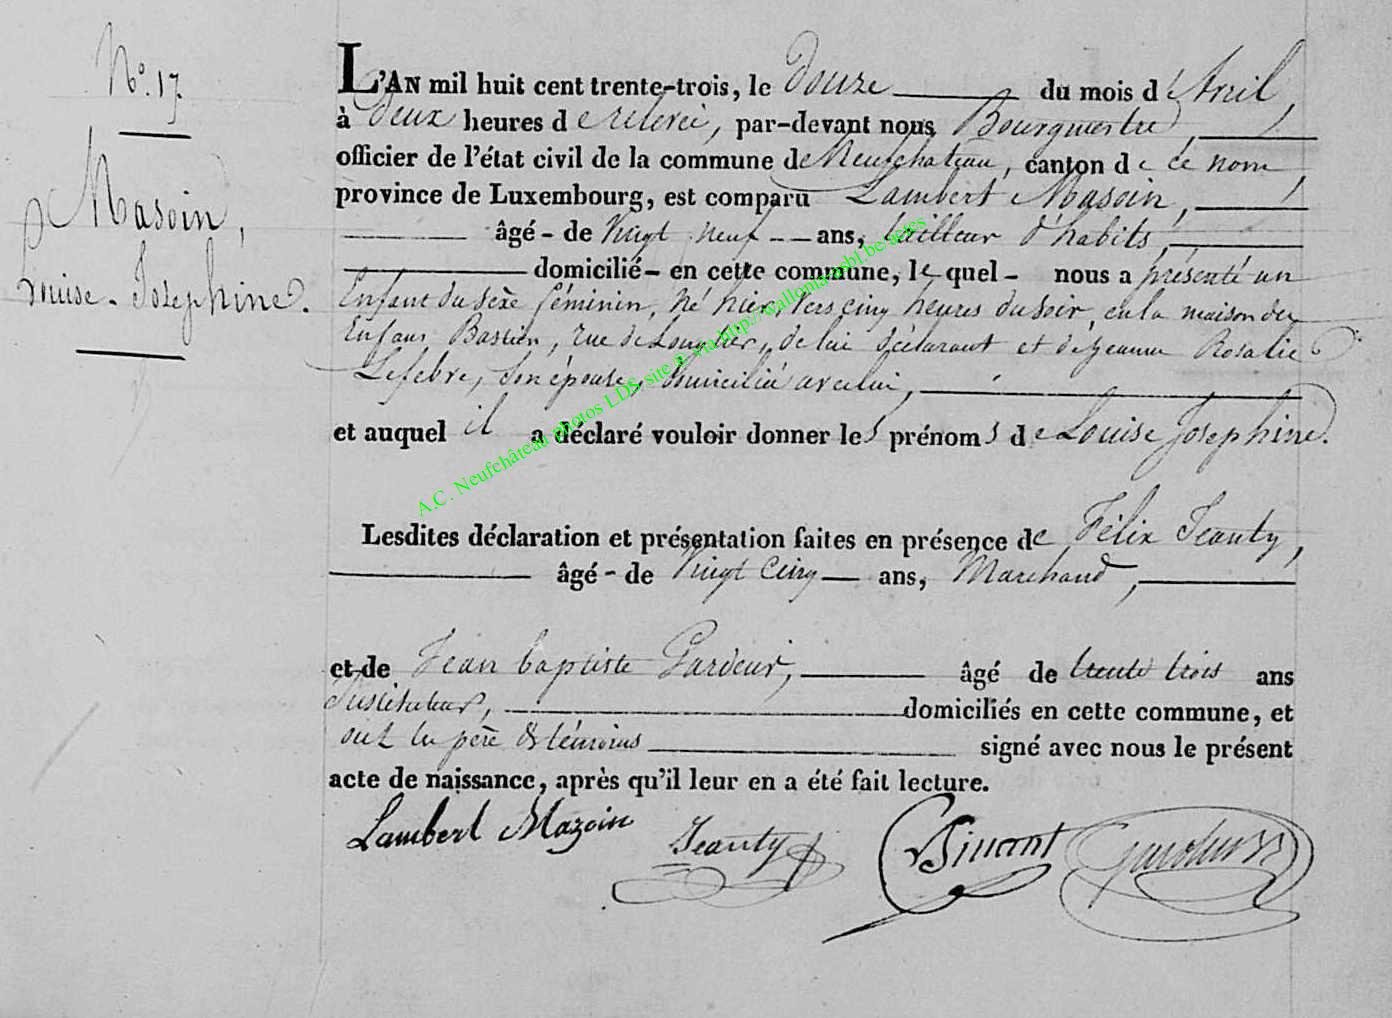 N.° 17.
Masoin,
Louise-Josephine.
L'AN mil huit cent trente-trois, le Douze du mois d'Avril,
à Deux heures de relevée, par-devant nous Bourgmestre,
officier de l'état civil de la commune de Neufchateau, canton de ce nom,
province de Luxembourg, est comparu Lambert Masoin,
âgé - de Vingt neuf - - ans, tailleur d'habits,
domicilié - en cette commune, le quel - nous a présenté un
Enfant du sexe féminin, né hier, vers cinq heures du soir, en la maison des
Enfans Bastien, rue de Longlier, de lui déclarant et de Jeanne Rosalie
Lefebre, son épouse, domiciliée avec lui,
et auquel il a déclaré vouloir donner les prénoms de Louise Josephine.
Lesdites déclaration et présentation faites en présence de Félix Jeanty,
âgé - de Vingt Cinq ans, Marchand,
et de Jean baptiste Gardeur, âgé de trente trois ans
Instituteur, domiciliés en cette commune, et
ont les père & témoins signé avec nous le présent
acte de naissance, après qu'il leur en a été fait lecture.
Lambert Mazoin Jeanty
A.C. Neufchâteau photos LDS, site & via http://wallonia-asbl.be/actes